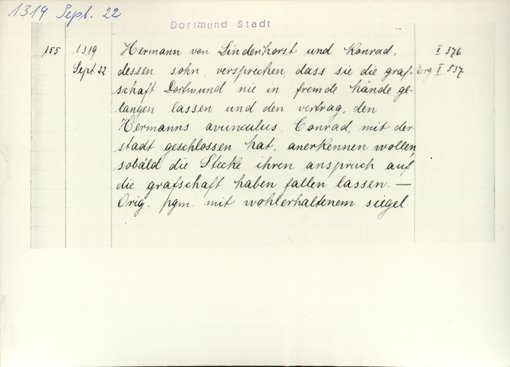 1319 Sept. 22
Dortmund Stadt
155 1319 Hermann von Lindenhorst und Konrad, I 376
Sept. 22 dessen sohn, versprechen, dass sie die graf- Erg I 557
schaft Dortmund nie in fremde hände ge-
langen lassen und den vertrag, den
Hermanns avunculus, Conrad, mit der
stadt geschlossen hat, anerkennen wollen,
sobald die Stecke ihren anspruch auf
die grafschaft haben fallen lassen. —
Orig. pgm. mit wohlerhaltenem siegel.